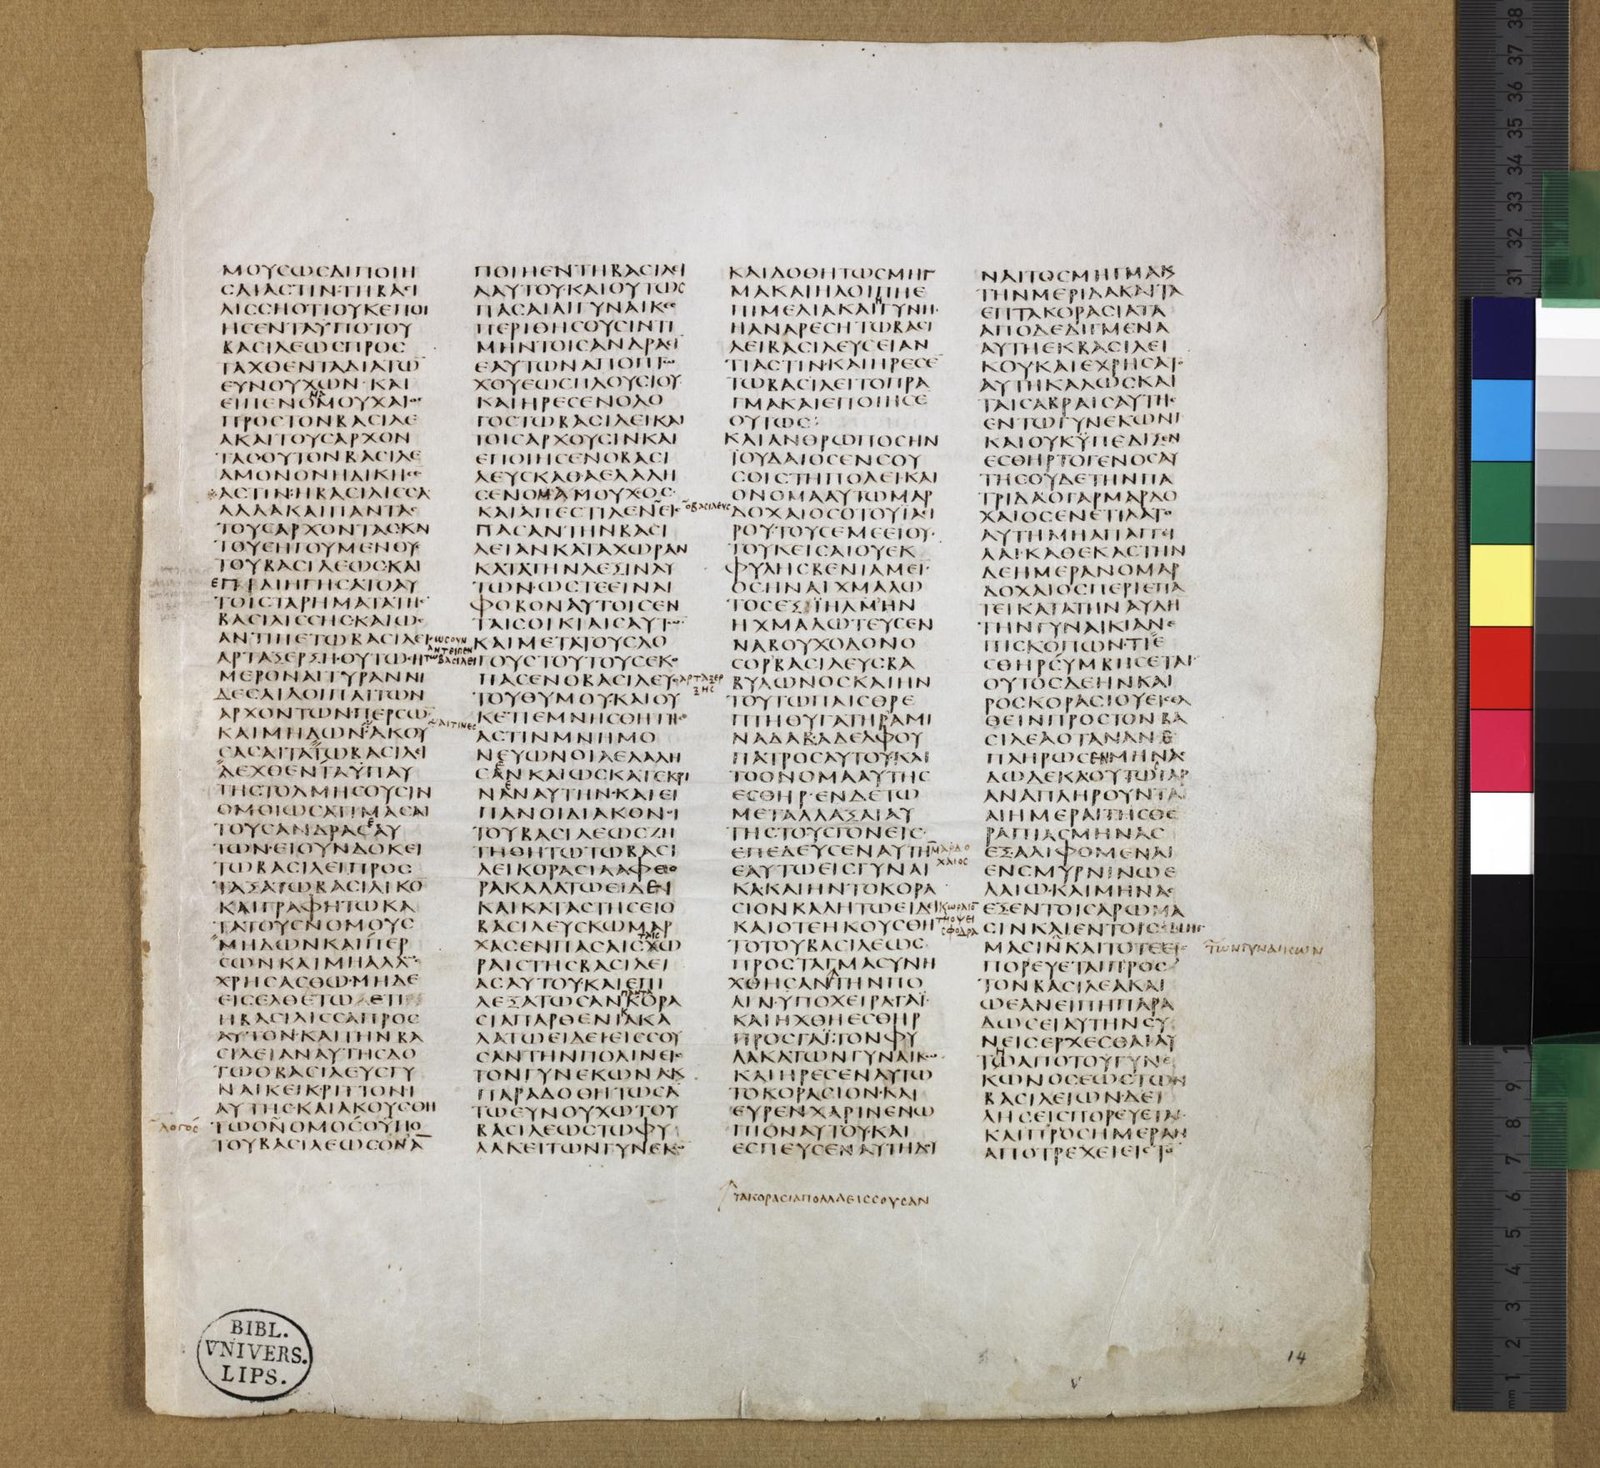 ΜΟΥCΩCΔΙΠΟΙΗ
CΑΙΑCΤΙΝ·ΤΗΒΑCΙ
ΛΙCCΗΟΤΙΟΥΚΕΠΟΙ
ΗCΕΝΤΑΫΠΟΤΟΥ
ΒΑCΙΛΕΩCΠΡΟC
ΤΑΧΘΕΝΤΑΔΙΑΤΩ
ΕΥΝΟΥΧΩΝ·ΚΑΙ
ΕΙΠΕΝΟΜΟΥΧΑΙΟC
ΠΡΟCΤΟΝΒΑCΙΛΕ
ΑΚΑΙΤΟΥCΑΡΧΟΝ
ΤΑCΟΥΤΟΝΒΑCΙΛΕ
ΑΜΟΝΟΝΗΔΙΚΗCΕ
ΑCΤΙΝ·ΗΒΑCΙΛΙCCΑ
ΑΛΛΑΚΑΙΠΑΝΤΑC
ΤΟΥCΑΡΧΟΝΤΑCΚΑΙ
ΤΟΥCΗΓΟΥΜΕΝΟΥC
ΤΟΥΒΑCΙΛΕΩCΚΑΙ
ΕΠΙΔΙΗΓΗCΑΤΟΑΥ
ΤΟΙCΤΑΡΗΜΑΤΑΤΗC
ΒΑCΙΛΙCCΗCΚΑΙΩC
ΑΝΤΙΠΕΤΩΒΑCΙΛΕΙ
ΑΡΤΑΞΕΡΞΗ·ΟΥΤΩCΗ
ΜΕΡΟΝΑΙΤΥΡΑΝΝΙ
ΔΕCΑΙΛΟΙΠΑΙΤΩΝ
ΑΡΧΟΝΤΩΝΠΕΡCΩ
ΚΑΙΜΗΔΩΝ·ΑΚΟΥ
CΑCΑΙΤΑΤΩΒΑCΙΛΕΙ
ΛΕΧΘΕΝΤΑΫΠΑΥ
ΤΗCΤΟΛΜΗCΟΥCΙΝ
ΟΜΟΙΩCΑΤΙΜΑCΑΙ
ΤΟΥCΑΝΔΡΑCΑΥ
ΤΩΝ·ΕΙΟΥΝΔΟΚΕΙ
ΤΩΒΑCΙΛΕΙΠΡΟC
ΤΑΞΑΤΩΒΑCΙΛΙΚΟ
ΚΑΙΓΡΑΦΗΤΩΚΑ
ΤΑΤΟΥCΝΟΜΟΥC
ΜΗΔΩΝΚΑΙΠΕΡ
CΩΝΚΑΙΜΗΑΛΛΩC
ΧΡΗCΑCΘΩ·ΜΗΔΕ
ΕΙCΕΛΘΕΤΩ ΕΤΙ
ΗΒΑCΙΛΙCCΑΠΡΟC
ΑΥΤΟΝ·ΚΑΙΤΗΝΒΑ
CΙΛΕΙΑΝΑΥΤΗCΔΟ
ΤΩΟΒΑCΙΛΕΥCΓΥ
ΝΑΙΚΕΙΚΡΙΤΤΟΝΙ
ΑΥΤΗC·ΚΑΙΑΚΟΥCΘΗ
ΤΩΟΝΟΜΟCΟΥΠΟ
ΤΟΥΒΑCΙΛΕΩCΟΝΑ
ΛΟΓΟC
ΠΟΙΗΕΝΤΗΒΑCΙΛΕΙ
ΑΑΥΤΟΥ·ΚΑΙΟΥΤΩC
ΠΑCΑΙΑΙΓΥΝΑΙΚΕC
ΠΕΡΙΘΗCΟΥCΙΝΤΙ
ΜΗΝΤΟΙCΑΝΔΡΑCΙ
ΕΑΥΤΩΝΑΠΟΠΤΩ
ΧΟΥΕΩCΠΛΟΥCΙΟΥ
ΚΑΙΗΡΕCΕΝΟΛΟ
ΓΟCΤΩΒΑCΙΛΕΙΚΑΙ
ΤΟΙCΑΡΧΟΥCΙΝΚΑΙ
ΕΠΟΙΗCΕΝΟΒΑCΙ
ΛΕΥCΚΑΘΑΕΛΑΛΗ
CΕΝΟΜΑΜΟΥΧΟC
ΚΑΙΑΠΕCΤΙΛΕΝΕΙC
ΟΒΑCΙΛΕΥC
ΠΑCΑΝΤΗΝΒΑCΙ
ΛΕΙΑΝΚΑΤΑΧΩΡΑΝ
ΚΑΤΑΤΗΝΛΕΞΙΝΑΥ
ΤΩΝ·ΩCΤΕΕΙΝΑΙ
ΦΟΒΟΝΑΥΤΟΙCΕΝ
ΤΑΙCΟΙΚΙΑΙCΑΥΤΩ
ΚΑΙΜΕΤΑΤΟΥCΛΟ
ΓΟΥCΤΟΥΤΟΥCΕΚΟ
ΠΑCΕΝΟΒΑCΙΛΕΥC
ΑΡΤΑΞΕΡ
ΞΗC
ΤΟΥΘΥΜΟΥ·ΚΑΙΟΥ
ΚΕΤΙΕΜΝΗCΘΗΤΗC
ΑCΤΙΝΜΝΗΜΟ
ΝΕΥΩΝΟΙΑΕΛΑΛΗ
CΑΝΚΑΙΩCΚΑΤΕΚΡΙ
ΝΑΝΑΥΤΗΝ·ΚΑΙΕΙ
ΠΑΝΟΙΔΙΑΚΟΝΟΙ
ΤΟΥΒΑCΙΛΕΩCΖΗ
ΤΗΘΗΤΩΤΩΒΑCΙ
ΛΕΙΚΟΡΑCΙΑΑΦΘΟ
ΡΑΚΑΛΑΤΩΕΙΔΕΙ
ΚΑΙΚΑΤΑCΤΗCΕΙΟ
ΒΑCΙΛΕΥCΚΩΜΑΡ
ΧΑCΕΝΠΑCΑΙCΧΩ
ΡΑΙCΤΗCΒΑCΙΛΕΙ
ΑCΑΥΤΟΥ·ΚΑΙΕΠΙ
ΛΕΞΑΤΩCΑΝΚΟΡΑ
CΙΑΠΑΡΘΕΝΙΚΑΚΑ
ΛΑΤΩΕΙΔΕΙ·ΕΙCCΟΥ
CΑΝΤΗΝΠΟΛΙΝΕΙC
ΤΟΝΓΥΝΕΚΩΝΑΚ
ΠΑΡΑΔΟΘΗΤΩCΑ
ΤΩΕΥΝΟΥΧΩΤΟΥ
ΒΑCΙΛΕΩCΤΩΦΥ
ΛΑΚΕΙΤΩΝΓΥΝΕΚΩ
ΚΑΙΔΟΘΗΤΩCΜΗΓ
ΜΑΚΑΙΗΛΟΙΠΗΕ
ΠΙΜΕΛΙΑΚΑΙΓΥΝΗ
ΗΑΝΑΡΕCΗΤΩΒΑCΙ
ΛΕΙΒΑCΙΛΕΥCΕΙΑΝ
ΤΙΑCΤΙΝ·ΚΑΙΗΡΕCΕ
ΤΩΒΑCΙΛΕΙΤΟΠΡΑ
ΓΜΑΚΑΙΕΠΟΙΗCΕ
ΟΥΤΩC:
ΚΑΙΑΝΘΡΩΠΟCΗΝ
ΪΟΥΔΑΙΟCΕΝCΟΥ
CΟΙCΤΗΠΟΛΕΙ·ΚΑΙ
ΟΝΟΜΑΑΥΤΩΜΑΡ
ΔΟΧΑΙΟCΟΤΟΥΙΑΕΙ
ΡΟΥ·ΤΟΥCΕΜΕΕΙΟΥ·
ΤΟΥΚΕΙCΑΙΟΥΕΚ
ΦΥΛΗCΒΕΝΙΑΜΕΙ
ΟCΗΝΑΙΧΜΑΛΩ
ΤΟCΕΞΪΗΛΜΗΝ
ΗΧΜΑΛΩΤΕΥCΕΝ
ΝΑΒΟΥΧΟΔΟΝΟ
CΟΡΒΑCΙΛΕΥCΒΑ
ΒΥΛΩΝΟCΚΑΙΗΝ
ΤΟΥΤΩΠΑΙCΘΡΕ
ΠΤΗΘΥΓΑΤΗΡΑΜΙ
ΝΑΔΑΒΑΔΕΛΦΟΥ
ΠΑΤΡΟCΑΥΤΟΥ·ΚΑΙ
ΤΟΟΝΟΜΑΑΥΤΗC
ΕCΘΗΡ·ΕΝΔΕΤΩ
ΜΕΤΑΛΛΑΞΑΙΑΥ
ΤΗCΤΟΥCΓΟΝΕΙC
ΕΠΕΔΕΥCΕΝΑΥΤΗ
ΜΑΡΔΟ
ΧΑΙΟC
ΕΑΥΤΩΕΙCΓΥΝΑΙ
ΚΑΚΑΙΗΝΤΟΚΟΡΑ
CΙΟΝΚΑΛΗΤΩΕΙΔΕΙ
ΚΑΙΟΤΕΗΚΟΥCΘΗ
CΦΟΔΡΑ
ΤΟΤΟΥΒΑCΙΛΕΩC
ΠΡΟCΤΑΓΜΑCΥΝΗ
ΧΘΗCΑΝΤΗΝΠΟ
ΛΙΝ·ΥΠΟΧΕΙΡΑΓΑΪ·
ΚΑΙΗΧΘΗΕCΘΗΡ
ΠΡΟCΓΑΪ·ΤΟΝΦΥ
ΛΑΚΑΤΩΝΓΥΝΑΙΚΩ
ΚΑΙΗΡΕCΕΝΑΥΤΩ
ΤΟΚΟΡΑCΙΟΝ·ΚΑΙ
ΕΥΡΕΝ·ΧΑΡΙΝΕΝΩ
ΠΙΟΝΑΥΤΟΥΚΑΙ
ΕCΠΕΥCΕΝΑΥΤΗΔΟΙ
ΤΑΚΟΡΑCΙΑΠΟΛΛΑΕΙCCΟΥCΑΝ
ΝΑΙΤΟCΜΗΓΜΑΚΑΙ
ΤΗΝΜΕΡΙΔΑΚΑΙΤΑ
ΕΠΤΑΚΟΡΑCΙΑΤΑ
ΑΠΟΔΕΔΙΓΜΕΝΑ
ΑΥΤΗΕΚΒΑCΙΛΕΙ
ΚΟΥΚΑΙΕΧΡΗCΑΤΟ
ΑΥΤΗΚΑΛΩCΚΑΙ
ΤΑΙCΑΒΡΑΙCΑΥΤΗC
ΕΝΤΩΓΥΝΕΚΩΝΙ
ΚΑΙΟΥΚΫΠΕΔΙΞΕΝ
ΕCΘΗΡΤΟΓΕΝΟCΑΥ
ΤΗCΟΥΔΕΤΗΝΠΑ
ΤΡΙΔΑΟΓΑΡΜΑΡΔΟ
ΧΑΙΟCΕΝΕΤΙΛΑΤΟ
ΑΥΤΗΜΗΑΠΑΓΓΙ
ΛΑΙ·ΚΑΘΕΚΑCΤΗΝ
ΔΕΗΜΕΡΑΝΟΜΑΡ
ΔΟΧΑΙΟCΠΕΡΙΕΠΑ
ΤΕΙΚΑΤΑΤΗΝΑΥΛΗ
ΤΗΝΓΥΝΑΙΚΙΑΝΕ
ΠΙCΚΟΠΩΝ·ΤΙΕ
CΘΗΡCΥΜΒΗCΕΤΑΙ·
ΟΥΤΟCΔΕΗΝΚΑΙ
ΡΟCΚΟΡΑCΙΟΥΕΙCΕΛ
ΘΕΙΝΠΡΟCΤΟΝΒΑ
CΙΛΕΑΟΤΑΝΑΝΕ
ΠΛΗΡΩCΕΝΜΗΝΑC
ΔΩΔΕΚΑ·ΟΥΤΩΓΑΡ
ΑΝΑΠΛΗΡΟΥΝΤΑΙ
ΑΙΗΜΕΡΑΙΤΗCΘΕ
ΡΑΠΙΑCΜΗΝΑC
ΕΞΑΛΙΦΟΜΕΝΑΙ
ΕΝCΜΥΡΝΙΝΩΕ
ΛΑΙΩ·ΚΑΙΜΗΝΑC
ΕΞΕΝΤΟΙCΑΡΩΜΑ
CΙΝΚΑΙΕΝΤΟΙC
ΜΑCΙΝΚΑΙΤΟΤΕΕΙC
ΤΩΝΓΥΝΑΙΚΩΝ
ΠΟΡΕΥΕΤΑΙΠΡΟC
ΤΟΝΒΑCΙΛΕΑΚΑΙ
ΩΕΑΝΕΙΠΗΠΑΡΑ
ΔΩCΕΙΑΥΤΗΝCΥ
ΝΕΙCΕΡΧΕCΘΑΙΑΥ
ΤΩΑΠΟΤΟΥΓΥΝΕ
ΚΩΝΟCΕΩCΤΩΝ
ΒΑCΙΛΕΙΩΝ·ΔΕΙ
ΛΗCΕΙCΠΟΡΕΥΕΤΑΙ
ΚΑΙΠΡΟCΗΜΕΡΑΝ
ΑΠΟΤΡΕΧΕΙΕΙCΤΟ
BIBL.
VNIVERS.
LIPS.
14